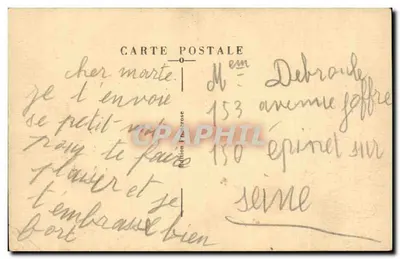 CARTE POSTALE
cher marte.
je t'envoie
se petit mot
pour te faire
plaisir et je
t'embrasse bien
fort
Mem Debraule
153 avenue joffre
150 épinet sur
seine
CPARPHIL